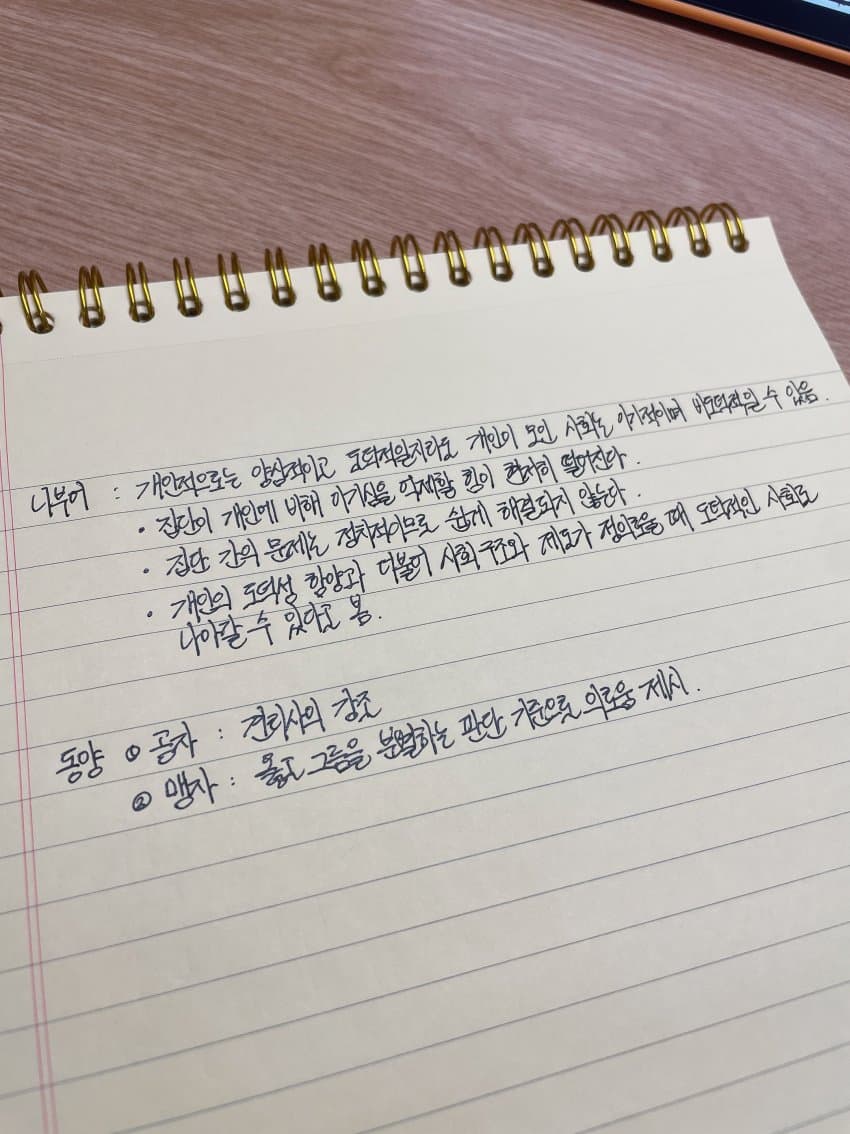 니부어 : 개인적으로는 양심적이고 도덕적일지라도 개인이 모인 사회는 이기적이며 비도덕적일 수 있음.
· 집단이 개인에 비해 이기심을 억제할 힘이 현저히 떨어진다.
· 집단 간의 문제는 정치적이므로 쉽게 해결되지 않는다.
· 개인의 도덕성 함양과 더불어 사회 구조와 제도가 정의로울 때 도덕적인 사회로
나아갈 수 있다고 봄.
동양 ① 공자 : 견리사의 강조
② 맹자 : 옳고 그름을 분별하는 판단 기준으로 의로움 제시.